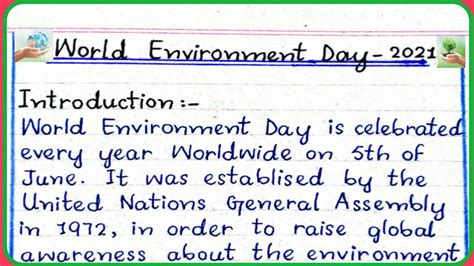 World Environment Day - 2021
Introduction :-
World Environment Day is celebrated
every year Worldwide on 5th of
June. It was establised by the
United Nations General Assembly
in 1972, in order to raise global
awareness about the environment